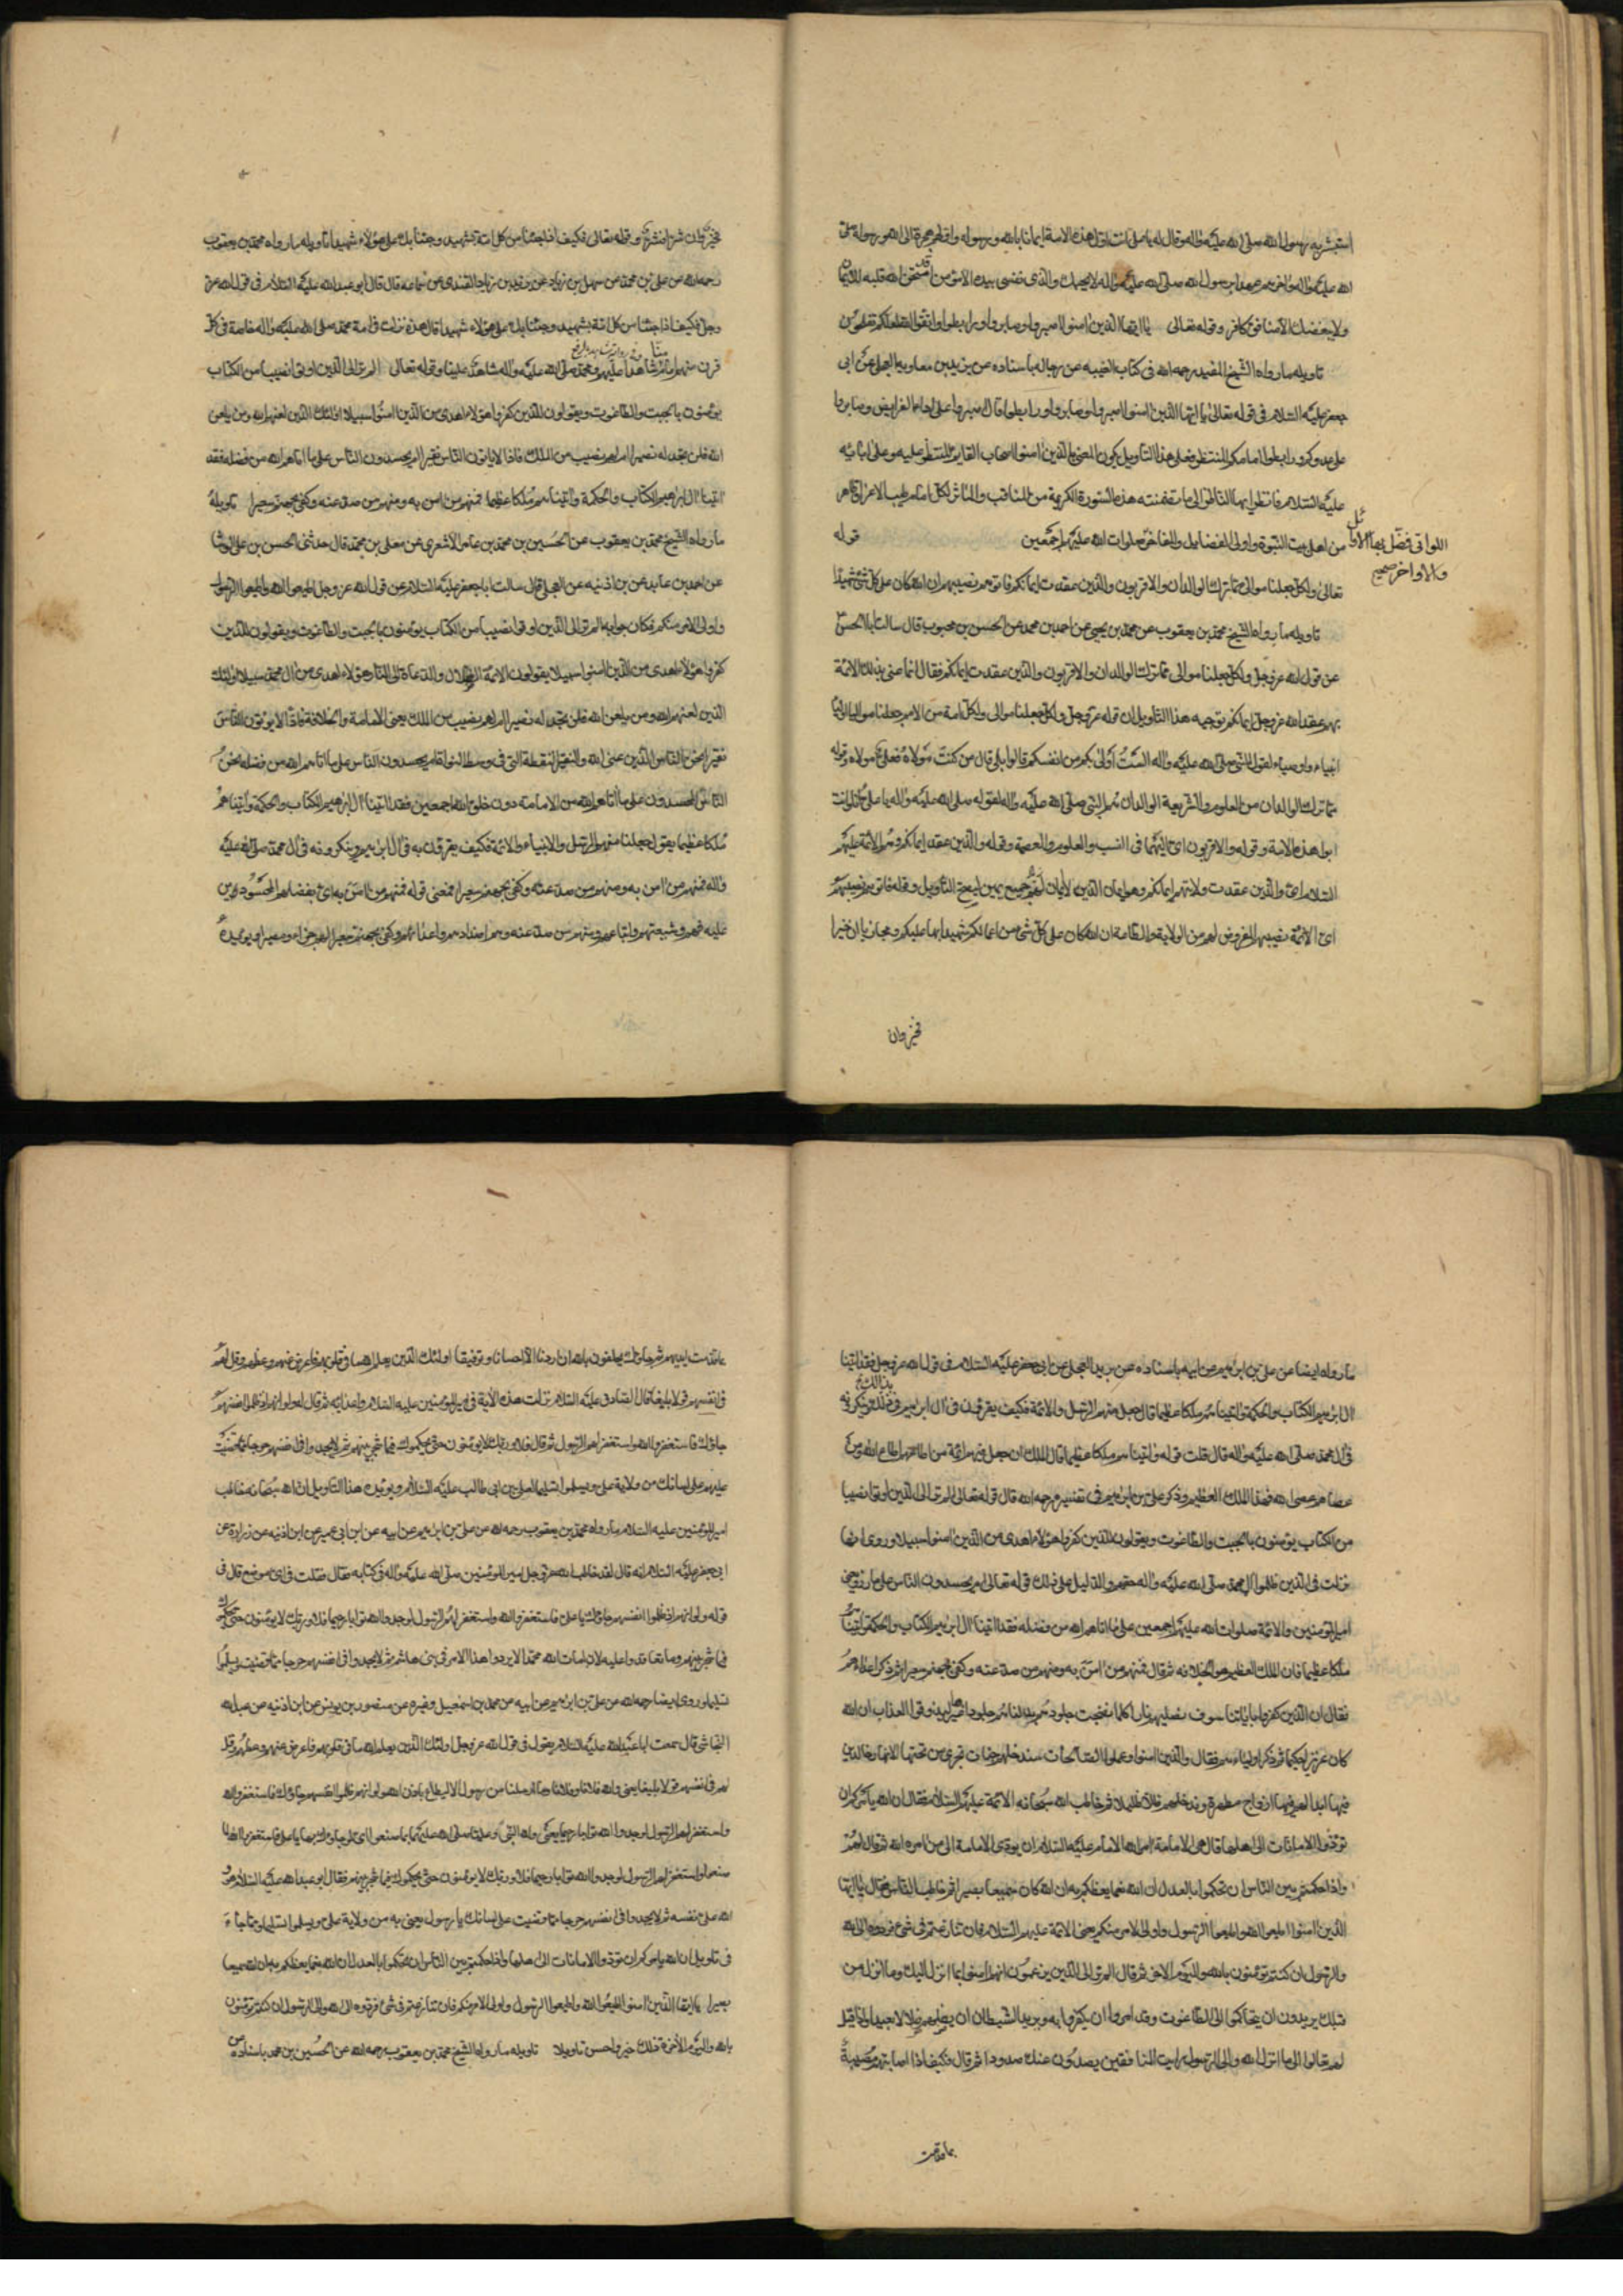 استبشر به رسول الله صلى الله عليه واله وقال له يا على انت اول هذه الامة ايمانا بالله ورسوله واولهم هجرة الى الله ورسوله
الله عليه واله واخرهم عهدا برسول الله صلى الله عليه واله لا يحبك والذى نفسى بيده الا مؤمن قد امتحن الله قلبه للايمان
ولا يبغضك الا منافق او كافر وقوله تعالى يا ايها الذين امنوا اصبروا وصابروا ورابطوا واتقوا الله لعلكم تفلحون
تاويله ما رواه الشيخ المفيد رحمه الله فى كتاب الغيبه عن رجاله باسناده عن بريد بن معاوية العجلى عن ابى
جعفر عليه السلام فى قوله تعالى يا ايها الذين امنوا اصبروا وصابروا ورابطوا قال اصبروا على اداء الفرايض وصابروا
على عدوكم ورابطوا امامكم المنتظر فعلى هذا التاويل يكون المعنى بالذين امنوا اصحاب القايم المنتظر عليه وعلى ابائه
عليه السلام فانظر ايها الناظر الى ما تضمنته هذه السورة الكريمة من المناقب والماثر لكل امام طيب الاعراق طاهر
من اهل بيت النبوة واولى الفضايل والمفاخر صلوات الله عليهم اجمعين قوله
اللواتى فضل بها الاوائل
والاواخر صحيح
تعالى ولكل جعلنا موالى مما ترك الوالدان والاقربون والذين عقدت ايمانكم فاتوهم نصيبهم ان الله كان على كل شئ شهيدا
تاويله ما رواه الشيخ محمد بن يعقوب عن محمد بن يحيى عن احمد بن محمد عن الحسن بن محبوب قال سالت ابا الحسن
عن قول الله عز وجل ولكل جعلنا موالى مما ترك الوالدان والاقربون والذين عقدت ايمانكم فقال انما عنى بذلك الائمة
بهم عقد الله عز وجل ايمانكم توجيه هذا التاويل ان قوله عز وجل ولكل جعلنا موالى ولكل امة من الامم جعلنا موالى اوليا
انبياء واوصياء لقول النبى صلى الله عليه واله الست اولى بكم من انفسكم قالوا بلى قال من كنت مولاه فعلى مولاه وقوله
مما ترك الوالدان من العلوم والشريعة الوالدان هم النبى صلى الله عليه واله لقوله صلى الله عليه واله يا على انا وانت
ابوا هذه الامة وقوله والاقربون اى اليهما فى النسب والعلوم والعصمة وقوله والذين عقدت ايمانكم وهم الائمة عليهم
السلام اى والذين عقدت ولايتهم ايمانكم وهو ايمان الدين لا ايمان جميع يمين ليصح التاويل وقوله فاتوهم نصيبهم
اى الائمة نصيبهم المفروض لهم من الولاية والطاعة ان الله كان على كل شئ من اعمالكم شهيدا بها عليكم ومجازيا ان خيرا
فخير وان
فخير وان شرا فشر وقوله تعالى فكيف اذا جئنا من كل امة بشهيد وجئنا بك على هؤلاء شهيدا تاويله ما رواه محمد بن يعقوب
رحمه الله عن على بن محمد عن سهل بن زياد عن بن زياد القندى عن سماعه قال قال ابو عبد الله عليه السلام فى قول الله عز
وجل فكيف اذا جئنا من كل امة بشهيد وجئنا بك على هؤلاء شهيدا قال هذه نزلت فى امة محمد صلى الله عليه واله خاصة فى كل
قرن منهم امام منا شاهدا عليهم ومحمد صلى الله عليه واله شاهد علينا وقوله تعالى الم تر الى الذين اوتوا نصيبا من الكتاب
يؤمنون بالجبت والطاغوت ويقولون للذين كفروا هؤلاء اهدى من الذين امنوا سبيلا اولئك الذين لعنهم الله ومن يلعن
الله فلن تجد له نصيرا ام لهم نصيب من الملك فاذا لا ياتون الناس نقيرا ام يحسدون الناس على ما اتاهم الله من فضله فقد
اتينا ال ابراهيم الكتاب والحكمة واتيناهم ملكا عظيما فمنهم من امن به ومنهم من صد عنه وكفى بجهنم سعيرا تاويله
ما رواه الشيخ محمد بن يعقوب عن الحسين بن محمد بن عامر الاشعرى عن معلى بن محمد قال حدثنى الحسن بن على الوشا
عن احمد بن عايذ عن بن اذينه عن العجلى قال سالت ابا جعفر عليه السلام عن قول الله عز وجل اطيعوا الله واطيعوا الرسول
واولى الامر منكم فكان جوابه الم تر الى الذين اوتوا نصيبا من الكتاب يؤمنون بالجبت والطاغوت ويقولون للذين
كفروا هؤلاء اهدى من الذين امنوا سبيلا يقولون الائمة الضلال والدعاة الى النار هؤلاء اهدى من ال محمد سبيلا اولئك
الذين لعنهم الله ومن يلعن الله فلن تجد له نصيرا ام لهم نصيب من الملك يعنى الامامة والخلافة فاذا لا يؤتون الناس
نقيرا نحن الناس الذين عنى الله والنقير النقطة التى فى وسط النواة ام يحسدون الناس على ما اتاهم الله من فضله نحن
الناس المحسدون على ما اتاهم الله من الامامة دون خلق الله اجمعين فقد اتينا ال ابراهيم الكتاب والحكمة واتيناهم
ملكا عظيما يقول جعلنا منهم الرسل والانبياء والائمة فكيف يقرون به فى ال ابراهيم وينكرونه فى ال محمد صلى الله عليه
واله فمنهم من امن به ومنهم من صد عنه وكفى بجهنم سعيرا فمعنى قوله فمنهم من امن به اى بفضلهم المحسودين
عليه فهم وشيعتهم واتباعهم ومنهم من صد عنه وهم اضدادهم واعداؤهم وكفى بجهنم سعيرا لهم جزاء ومصيرا ويؤيده
ما رواه ايضا عن على بن ابراهيم عن ابيه باسناده عن بريد العجلى عن ابى جعفر عليه السلام فى قول الله عز وجل فقد اتينا
ال ابراهيم الكتاب والحكمة واتيناهم ملكا عظيما قال جعل منهم الرسل والائمة فكيف يقرون فى ال ابراهيم وينكرونه
فى ال محمد صلى الله عليه واله قال قلت قوله واتيناهم ملكا عظيما قال الملك ان جعل فيهم ائمة من اطاعهم اطاع الله ومن
عصاهم عصى الله فهذا الملك العظيم وذكر على بن ابراهيم فى تفسيره رحمه الله قال قوله تعالى الم تر الى الذين اوتوا نصيبا
من الكتاب يؤمنون بالجبت والطاغوت ويقولون للذين كفروا هؤلاء اهدى من الذين امنوا سبيلا وروى انها
نزلت فى الذين ظلموا ال محمد صلى الله عليه واله حقهم والدليل على ذلك قوله تعالى ام يحسدون الناس على ما
امير المؤمنين والائمة صلوات الله عليهم اجمعين على ما اتاهم الله من فضله فقد اتينا ال ابراهيم الكتاب والحكمة واتيناهم
ملكا عظيما فان الملك العظيم هو الخلافه ثم قال فمنهم من امن به ومنهم من صد عنه وكفى بجهنم سعيرا ثم ذكر اعداءهم
فقال ان الذين كفروا باياتنا سوف نصليهم نارا كلما نضجت جلودهم بدلناهم جلودا غيرها ليذوقوا العذاب ان الله
كان عزيزا حكيما ثم ذكر اولياءهم فقال والذين امنوا وعملوا الصالحات سندخلهم جنات تجرى من تحتها الانهار خالدين
فيها ابدا لهم فيها ازواج مطهرة وندخلهم ظلا ظليلا ثم خاطب الله سبحانه الائمة عليهم السلام فقال ان الله يامركم ان
تؤدوا الامانات الى اهلها قال هى الامامة امر الله الامام عليه السلام ان يؤدى الامامة الى من امره الله ثم قال لهم
واذا حكمتم بين الناس ان تحكموا بالعدل ان الله نعما يعظكم به ان الله كان سميعا بصيرا ثم خاطب الناس فقال يا ايها
الذين امنوا اطيعوا الله واطيعوا الرسول واولى الامر منكم يعنى الائمة عليهم السلام فان تنازعتم فى شئ فردوه الى الله
والرسول ان كنتم تؤمنون بالله واليوم الاخر ثم قال الم تر الى الذين يزعمون انهم امنوا بما انزل اليك وما انزل من
قبلك يريدون ان يتحاكموا الى الطاغوت وقد امروا ان يكفروا به ويريد الشيطان ان يضلهم ضلالا بعيدا واذا قيل
لهم تعالوا الى ما انزل الله والى الرسول رايت المنافقين يصدون عنك صدودا ثم قال فكيف اذا اصابتهم مصيبة
بما قدمت
بما قدمت ايديهم ثم جاؤك يحلفون بالله ان اردنا الا احسانا وتوفيقا اولئك الذين يعلم الله ما فى قلوبهم فاعرض عنهم وعظهم وقل لهم
فى انفسهم قولا بليغا قال الصادق عليه السلام نزلت هذه الاية فى امير المؤمنين عليه السلام واعدائه ثم قال الله ولو انهم اذ ظلموا انفسهم
جاؤك فاستغفروا الله واستغفر لهم الرسول ثم قال فلا وربك لا يؤمنون حتى يحكموك فيما شجر بينهم ثم لا يجدوا فى انفسهم حرجا مما قضيت
عليهم على لسانك من ولاية على ويسلموا تسليما لعلى بن ابى طالب عليه السلام ويؤيد هذا التاويل ان الله سبحانه خاطب
امير المؤمنين عليه السلام ما رواه محمد بن يعقوب رحمه الله عن على بن ابراهيم عن ابيه عن ابن ابى عمير عن ابن اذينه عن زرارة عن
ابى جعفر عليه السلام انه قال لقد خاطب الله عز وجل امير المؤمنين صلى الله عليه واله فى كتابه فقال فقلت فى اى موضع قال فى
قوله ولو انهم اذ ظلموا انفسهم جاؤك يا على فاستغفروا الله واستغفر لهم الرسول لوجدوا الله توابا رحيما فلا وربك لا يؤمنون حتى يحكموك
فيما شجر بينهم وما تعاقدوا عليه لان امات الله محمدا لا يردوا هذا الامر فى بنى هاشم ثم لا يجدوا فى انفسهم حرجا مما قضيت ويسلموا
تسليما وروى ايضا رحمه الله عن على بن ابراهيم عن ابيه عن محمد بن اسمعيل وغيره عن منصور بن يونس عن ابن اذينه عن عبد الله
النجاشى قال سمعت ابا عبد الله عليه السلام يقول فى قول الله عز وجل اولئك الذين يعلم الله ما فى قلوبهم فاعرض عنهم وعظهم وقل
لهم فى انفسهم قولا بليغا يعنى والله فلانا وفلانا وما ارسلنا من رسول الا ليطاع باذن الله ولو انهم اذ ظلموا انفسهم جاؤك فاستغفروا الله
واستغفر لهم الرسول لوجدوا الله توابا رحيما يعنى والله النبى وعليا صلى الله عليهما بما صنعوا اى لو جاؤك بها يا على فاستغفروا الله مما
صنعوا واستغفر لهم الرسول لوجدوا الله توابا رحيما فلا وربك لا يؤمنون حتى يحكموك فيما شجر بينهم فقال ابو عبد الله عليه السلام هو
الله على نفسه ثم لا يجدوا فى انفسهم حرجا مما قضيت على لسانك يا رسول يعنى به من ولاية على ويسلموا تسليما ومما جاء
فى تاويل ان الله يامركم ان تؤدوا الامانات الى اهلها واذا حكمتم بين الناس ان تحكموا بالعدل ان الله نعما يعظكم به ان الله سميعا
بصيرا يا ايها الذين امنوا اطيعوا الله واطيعوا الرسول واولى الامر منكم فان تنازعتم فى شئ فردوه الى الله والى الرسول ان كنتم تؤمنون
بالله واليوم الاخر ذلك خير واحسن تاويلا تاويله ما رواه الشيخ محمد بن يعقوب رحمه الله عن الحسين بن محمد باسناده عن